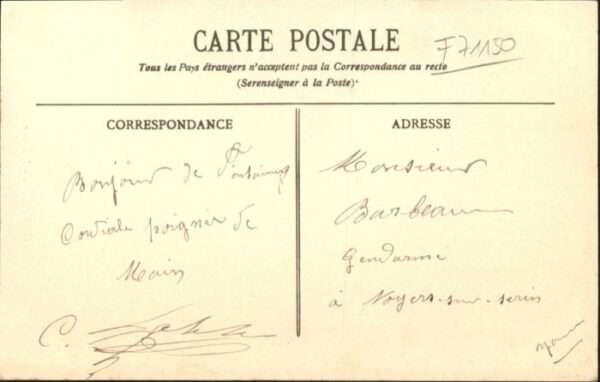 CARTE POSTALE
F71150
Tous les Pays étrangers n'acceptent pas la Correspondance au recto
(Serenseigner à la Poste)
CORRESPONDANCE
Bonjour de
Cordiale poignée de
Main
C.
ADRESSE
Monsieur
Barbeau
Gendarme
à Noyers-sur-Serin